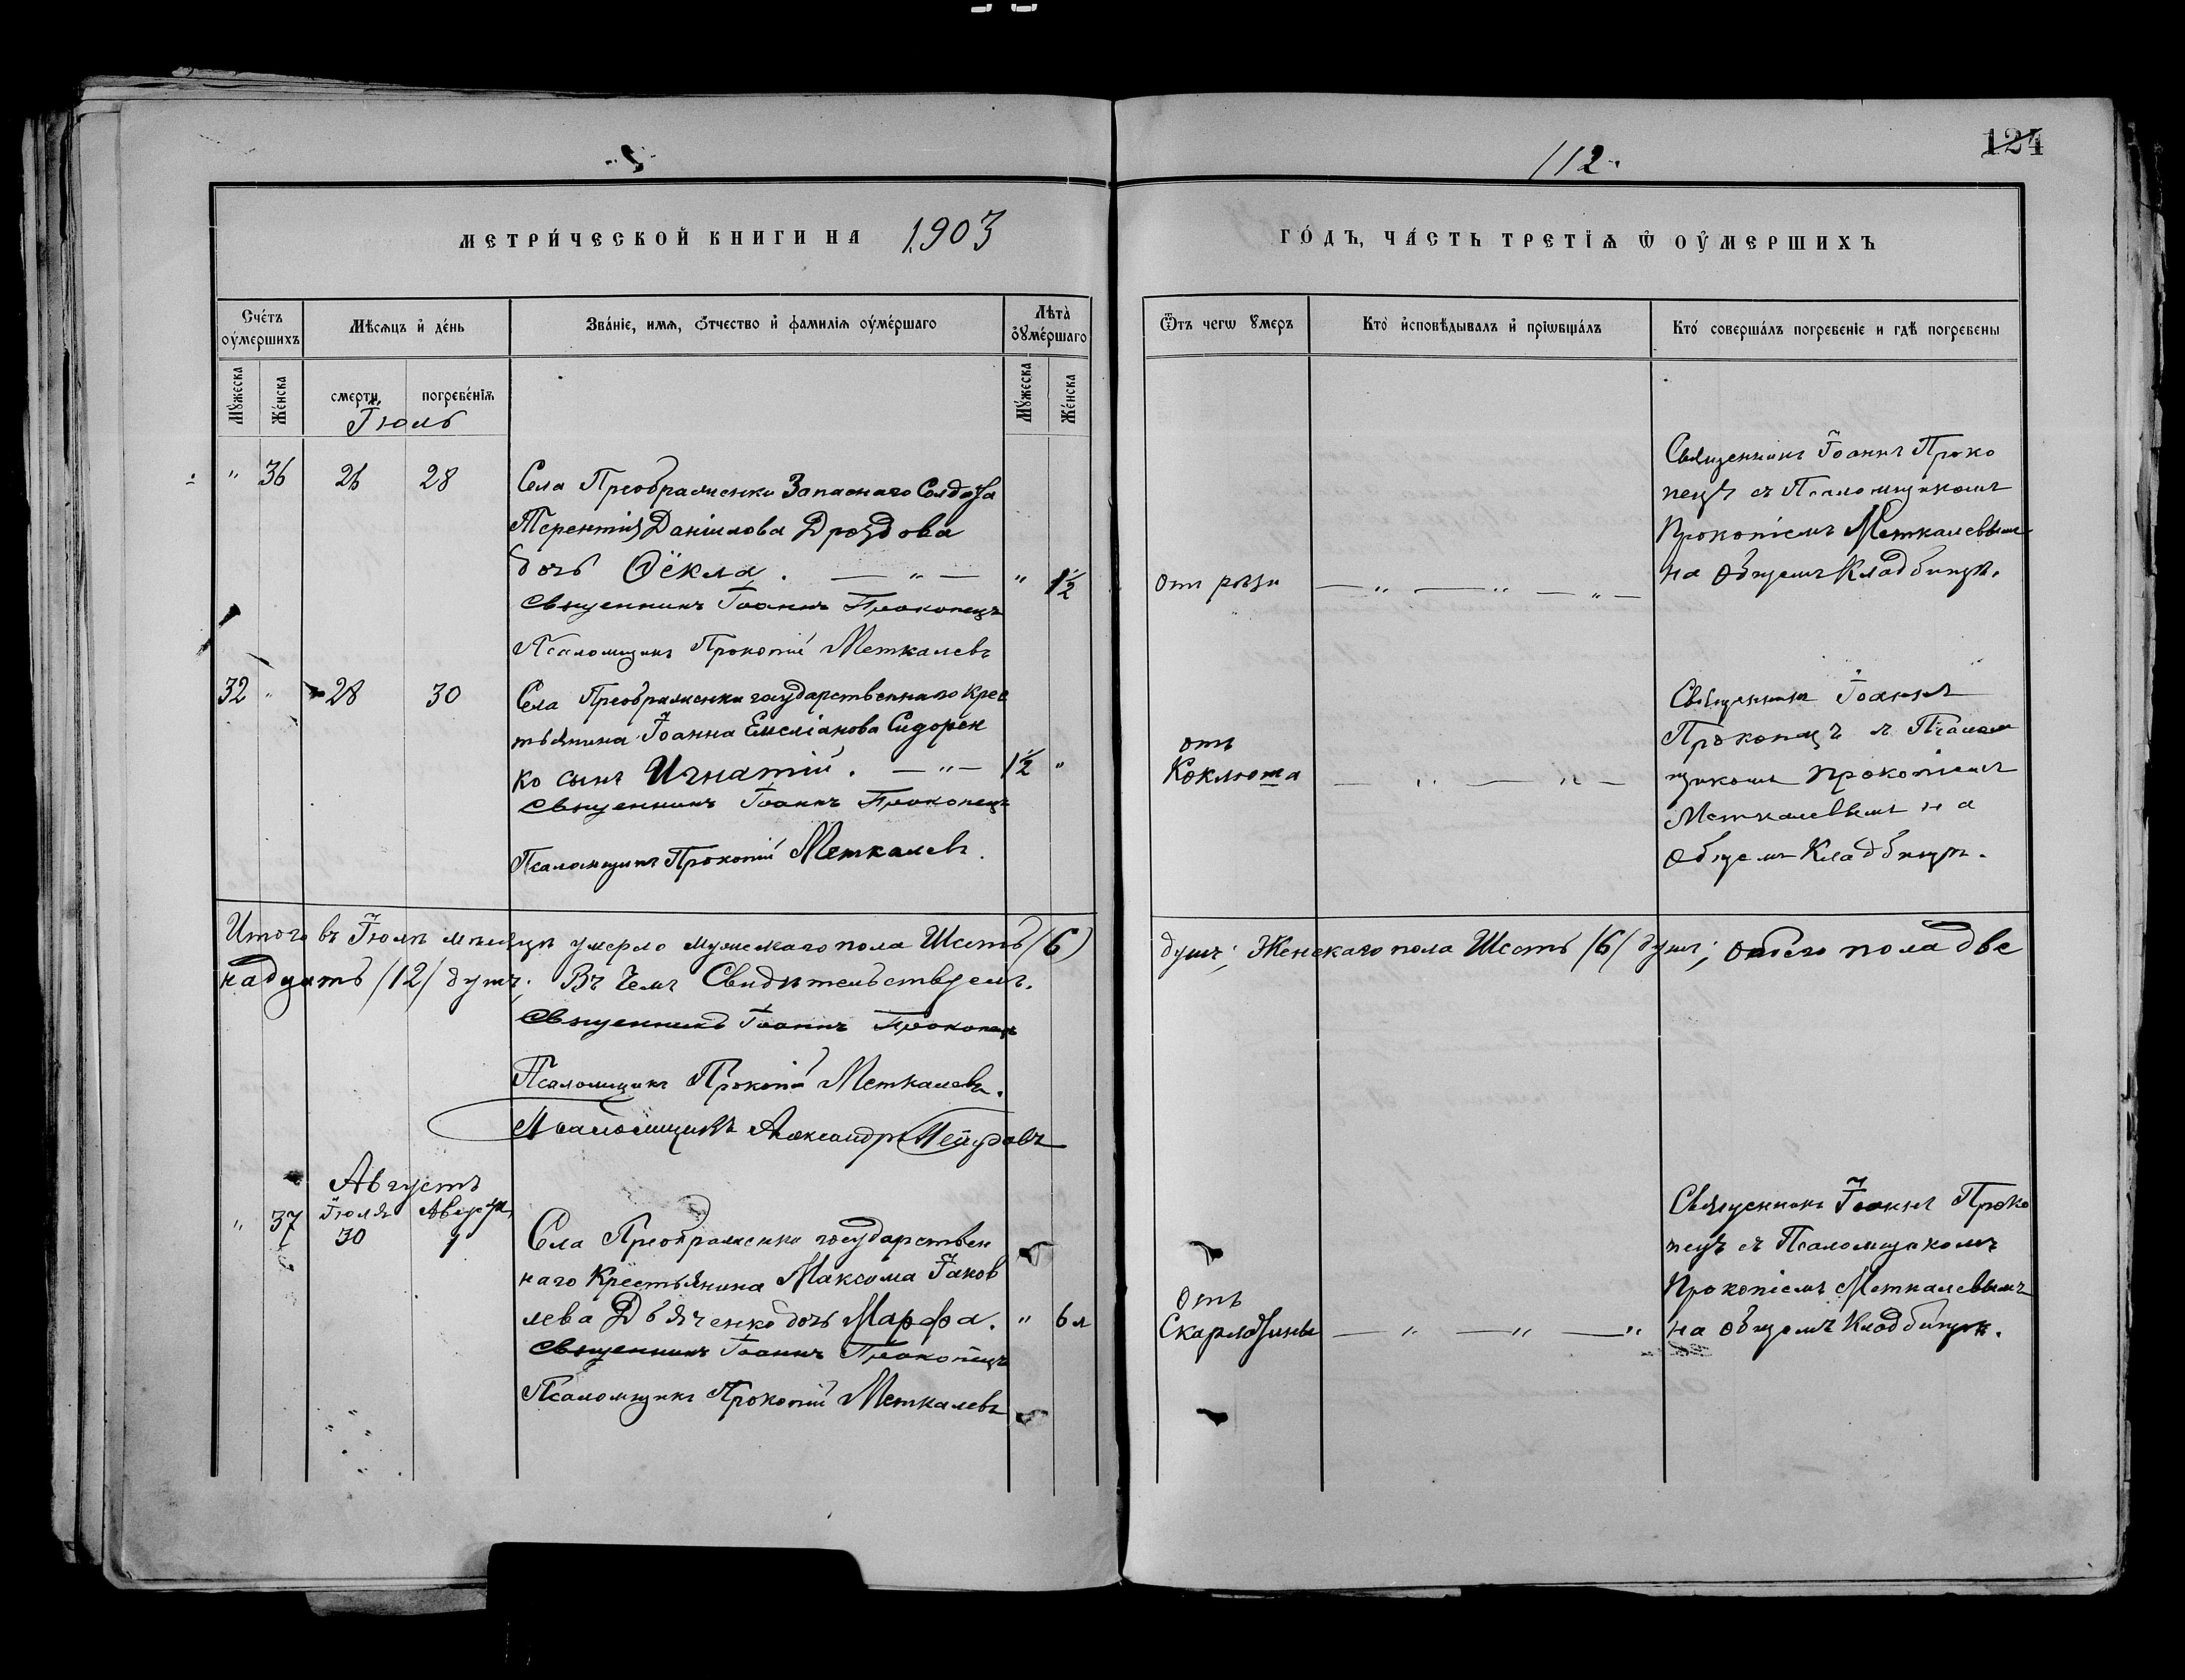 112.
124
МЕТРИ́ЧЕСКОЙ КНИГИ НА 1903
ГО́ДЪ, ЧА́СТЬ ТРЕТІѦ Ѿ ОУ҆МЕРШИХЪ
Сче́тъ оу҆ме́ршихъ
Мѣсѧцъ и҆ де́нь
Зва́нїе, имѧ, ѻ҆́тчество и҆ фамилїѧ оу҆ме́ршаго
Лѣта̀ оу҆ме́ршаго
Ѿ чегѡ ꙋмеръ
Кто̀ и҆сповѣдывалъ и҆ прїѡбща́лъ
Кто́ соверша́лъ погребенїе и гдѣ погребены
Мꙋжеска
Же́нска
смерти
погребе́нїѧ
Мꙋжеска
Же́нска
Іюль
" 36 26 28
Села Преображенки Запаснаго Солдата
Терентія Даніилова Дроздова
дочь Ѳёкла. — " — " 1½
Священникъ Іоаннъ Прокопецъ
Псаломщикъ Прокопій Меткалевъ
отъ рѣзи — " — " — " —
Священникъ Іоаннъ Проко
пецъ съ Псаломщикомъ
Прокопіемъ Меткалевымъ
на общемъ Кладбищѣ.
32 " 28 30
Села Преображенки государственнаго Крес
тьянина Іоанна Емеліанова Сидорен
ко сынъ Игнатій. — " — 1½ "
Священникъ Іоаннъ Прокопецъ
Псаломщикъ Прокопій Меткалевъ.
отъ
Коклюша — " — " —
Священникъ Іоаннъ
Прокопецъ съ Псалом
щикомъ Прокопіемъ
Меткалевымъ на
общемъ Кладбищѣ.
Итого въ Іюлѣ мѣсяцѣ умерло мужескаго пола Шесть (6) душъ; Женскаго пола Шесть /6/ душъ; обоего пола две
надцать /12/ душъ. Въ Чемъ Свидѣтельствуемъ.
Священникъ Іоаннъ Прокопецъ
Псаломщикъ Прокопій Меткалевъ.
Псаломщикъ Александръ
Августъ
Іюля Августа
" 37 30 1
Села Преображенки государствен
наго Крестьянина Максима Іаков
лева Дьяченко дочь Марѳа. " 6 л
Священникъ Іоаннъ Прокопецъ
Псаломщикъ Прокопій Меткалевъ
Отъ
Скарлатины — " — " — "
Священникъ Іоаннъ Проко
пецъ съ Псаломщикомъ
Прокопіемъ Меткалевымъ
на общемъ Кладбищѣ.